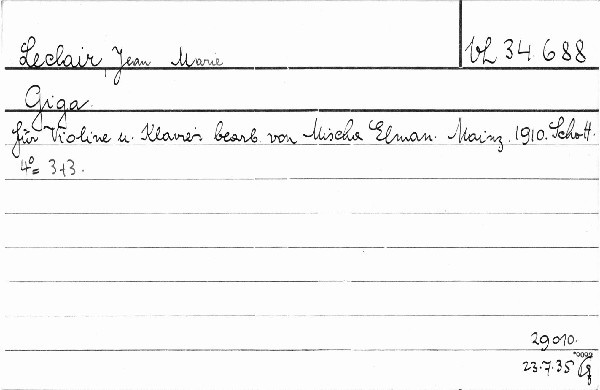 Leclair, Jean Marie VL 34 688
Giga.
für Violine u. Klavier bearb. von Mischa Elman. Mainz. 1910. Schott.
4º = 3+3.
29010.
°0092
23.7.35